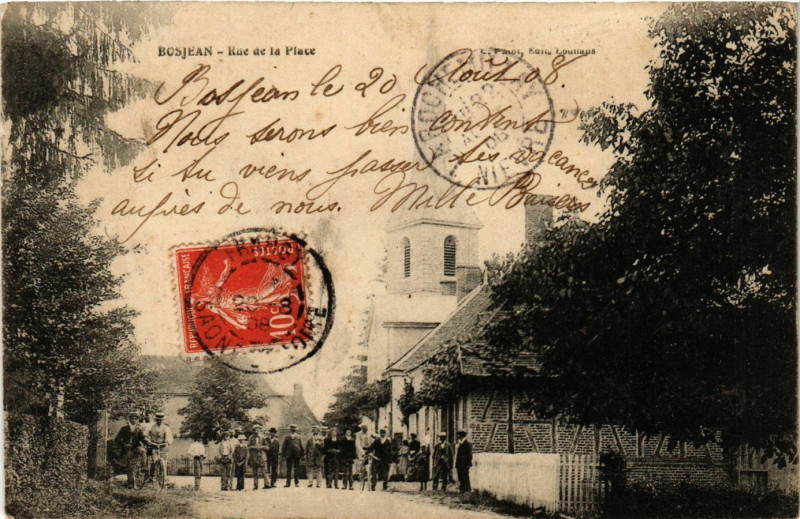 BOSJEAN - Rue de la Place
C. Pinot, Edit. Louhans
Bosjean le 20 Août 08.
Nous serons bien content
si tu viens passer tes vacances
auprès de nous. Mille Baisers
REPUBLIQUE FRANÇAISE
POSTES
10c
SAONE
LOIRE
NIEVRE